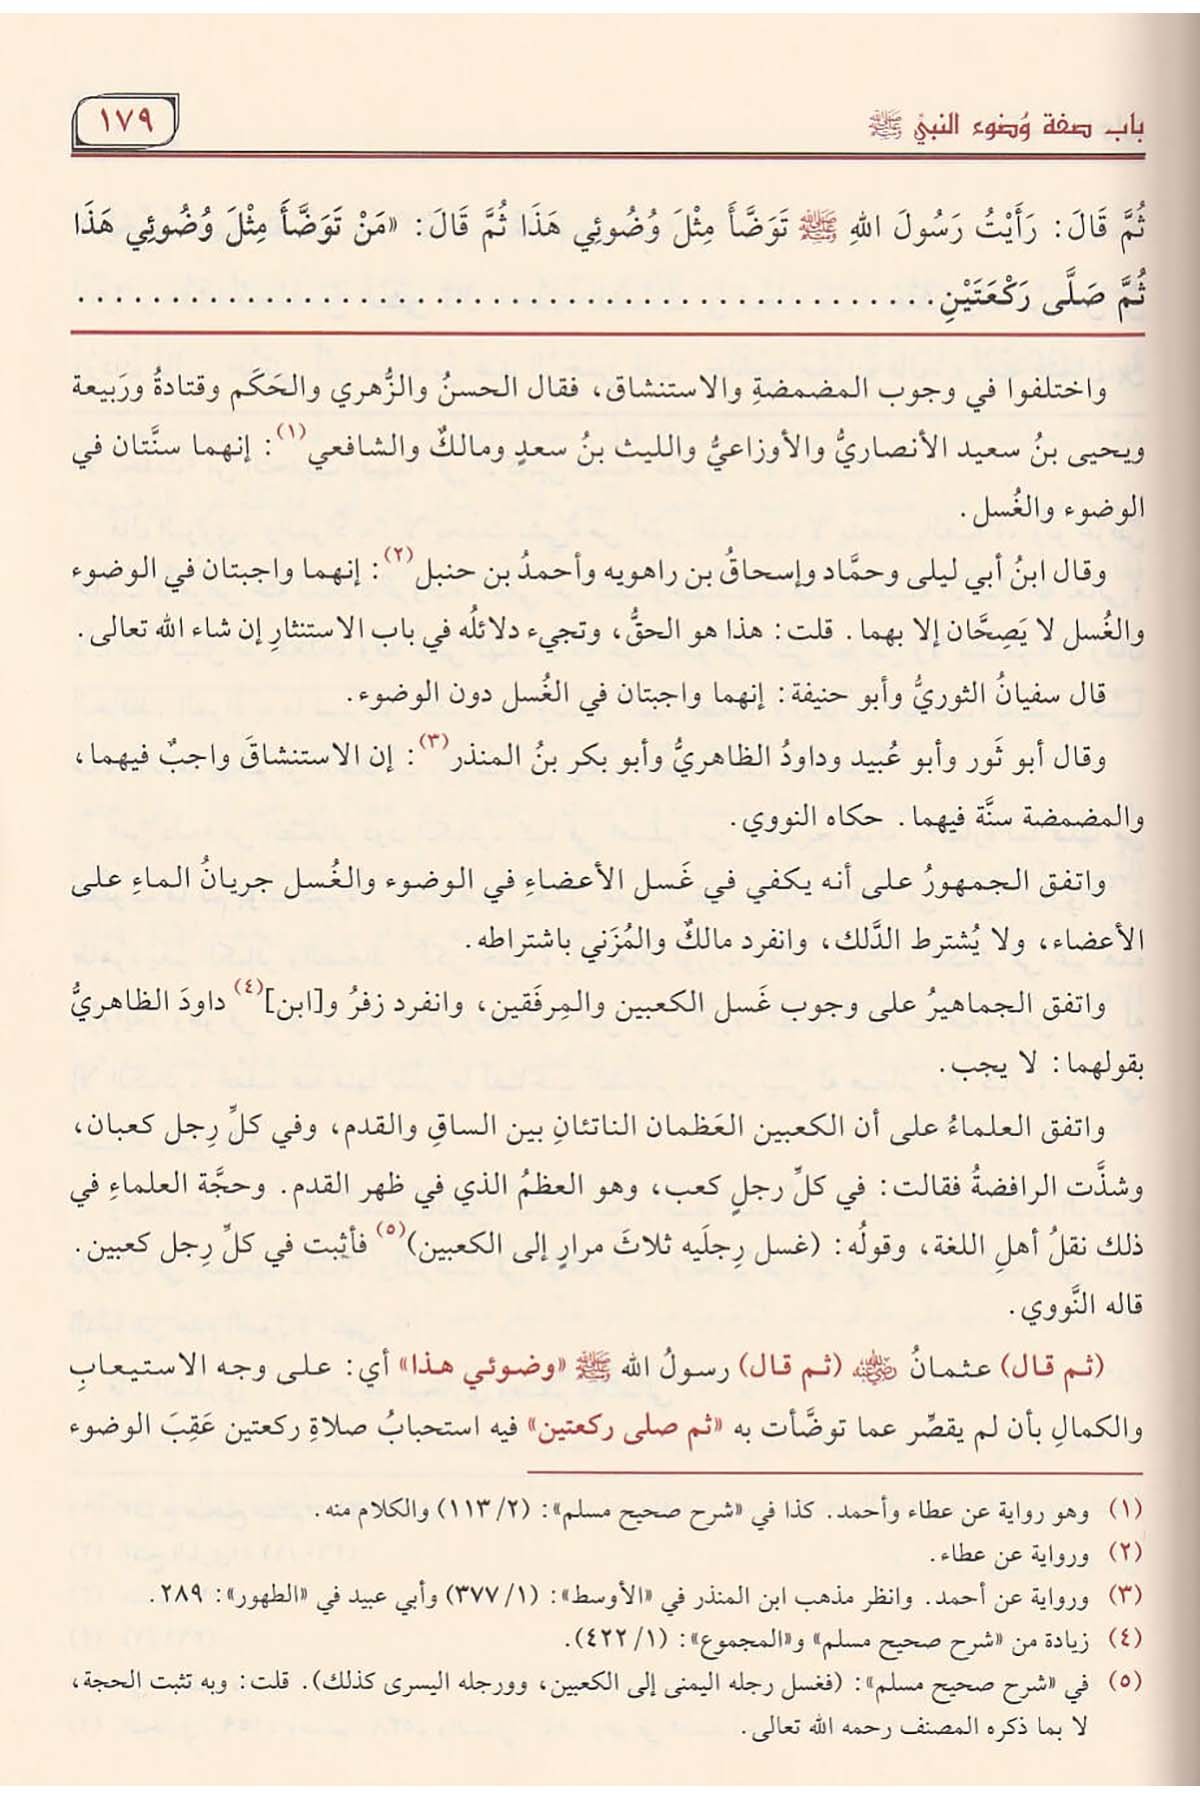 باب صفة وُضوء النبيّ ﷺ
١٧٩
ثُمَّ قَالَ: رَأَيْتُ رَسُولَ اللهِ ﷺ تَوَضَّأَ مِثْلَ وُضُوئِي هَذَا ثُمَّ قَالَ: «مَنْ تَوَضَّأَ مِثْلَ وُضُوئِي هَذَا
ثُمَّ صَلَّى رَكْعَتَيْنِ................................................
واختلفوا في وجوب المضمضةِ والاستنشاق، فقال الحسنُ والزُّهري والحَكَم وقتادةُ ورَبيعة
ويحيى بنُ سعيد الأنصاريُّ والأوزاعيُّ والليث بنُ سعدٍ ومالكٌ والشافعي(١): إنهما سنَّتان في
الوضوء والغُسل.
وقال ابنُ أبي ليلى وحمَّاد وإسحاقُ بن راهويه وأحمدُ بن حنبل(٢): إنهما واجبتان في الوضوء
والغُسل لا يَصِحَّان إلا بهما. قلت: هذا هو الحقُّ، وتجيء دلائلُه في باب الاستنثارِ إن شاء الله تعالى.
قال سفيانُ الثوريُّ وأبو حنيفة: إنهما واجبتان في الغُسل دون الوضوء.
وقال أبو ثَور وأبو عُبيد وداودُ الظاهريُّ وأبو بكر بنُ المنذر(٣): إن الاستنشاقَ واجبٌ فيهما،
والمضمضة سنَّة فيهما. حكاه النووي.
واتفق الجمهورُ على أنه يكفي في غَسل الأعضاءِ في الوضوء والغُسل جريانُ الماءِ على
الأعضاء، ولا يُشترط الدَّلك، وانفرد مالكٌ والمُزَني باشتراطه.
واتفق الجماهيرُ على وجوب غَسل الكعبين والمِرفَقين، وانفرد زفرُ و[ابن](٤) داودَ الظاهريُّ
بقولهما: لا يجب.
واتفق العلماءُ على أن الكعبين العَظمان الناتئانِ بين الساقِ والقدم، وفي كلِّ رِجل كعبان،
وشذَّت الرافضةُ فقالت: في كلِّ رجلٍ كعب، وهو العظمُ الذي في ظهر القدم. وحجَّة العلماءِ في
ذلك نقلُ أهلِ اللغة، وقولُه: (غسل رِجلَيه ثلاثَ مرارٍ إلى الكعبين)(٥) فأثبت في كلِّ رِجل كعبين.
قاله النَّووي.
(ثم قال) عثمانُ رضي الله عنه (ثم قال) رسولُ الله ﷺ «وضوئي هذا» أي: على وجه الاستيعابِ
والكمالِ بأن لم يقصِّر عما توضَّأت به «ثم صلى ركعتين» فيه استحبابُ صلاةِ ركعتين عَقِبَ الوضوء
(١) وهو رواية عن عطاء وأحمد. كذا في «شرح صحيح مسلم»: (١١٣/٢) والكلام منه.
(٢) ورواية عن عطاء.
(٣) ورواية عن أحمد. وانظر مذهب ابن المنذر في «الأوسط»: (٣٧٧/١) وأبي عبيد في «الطهور»: ٢٨٩.
(٤) زيادة من «شرح صحيح مسلم» و«المجموع»: (٤٢٢/١).
(٥) في «شرح صحيح مسلم»: (فغسل رجله اليمنى إلى الكعبين، وورجله اليسرى كذلك). قلت: وبه تثبت الحجة،
لا بما ذكره المصنف رحمه الله تعالى.